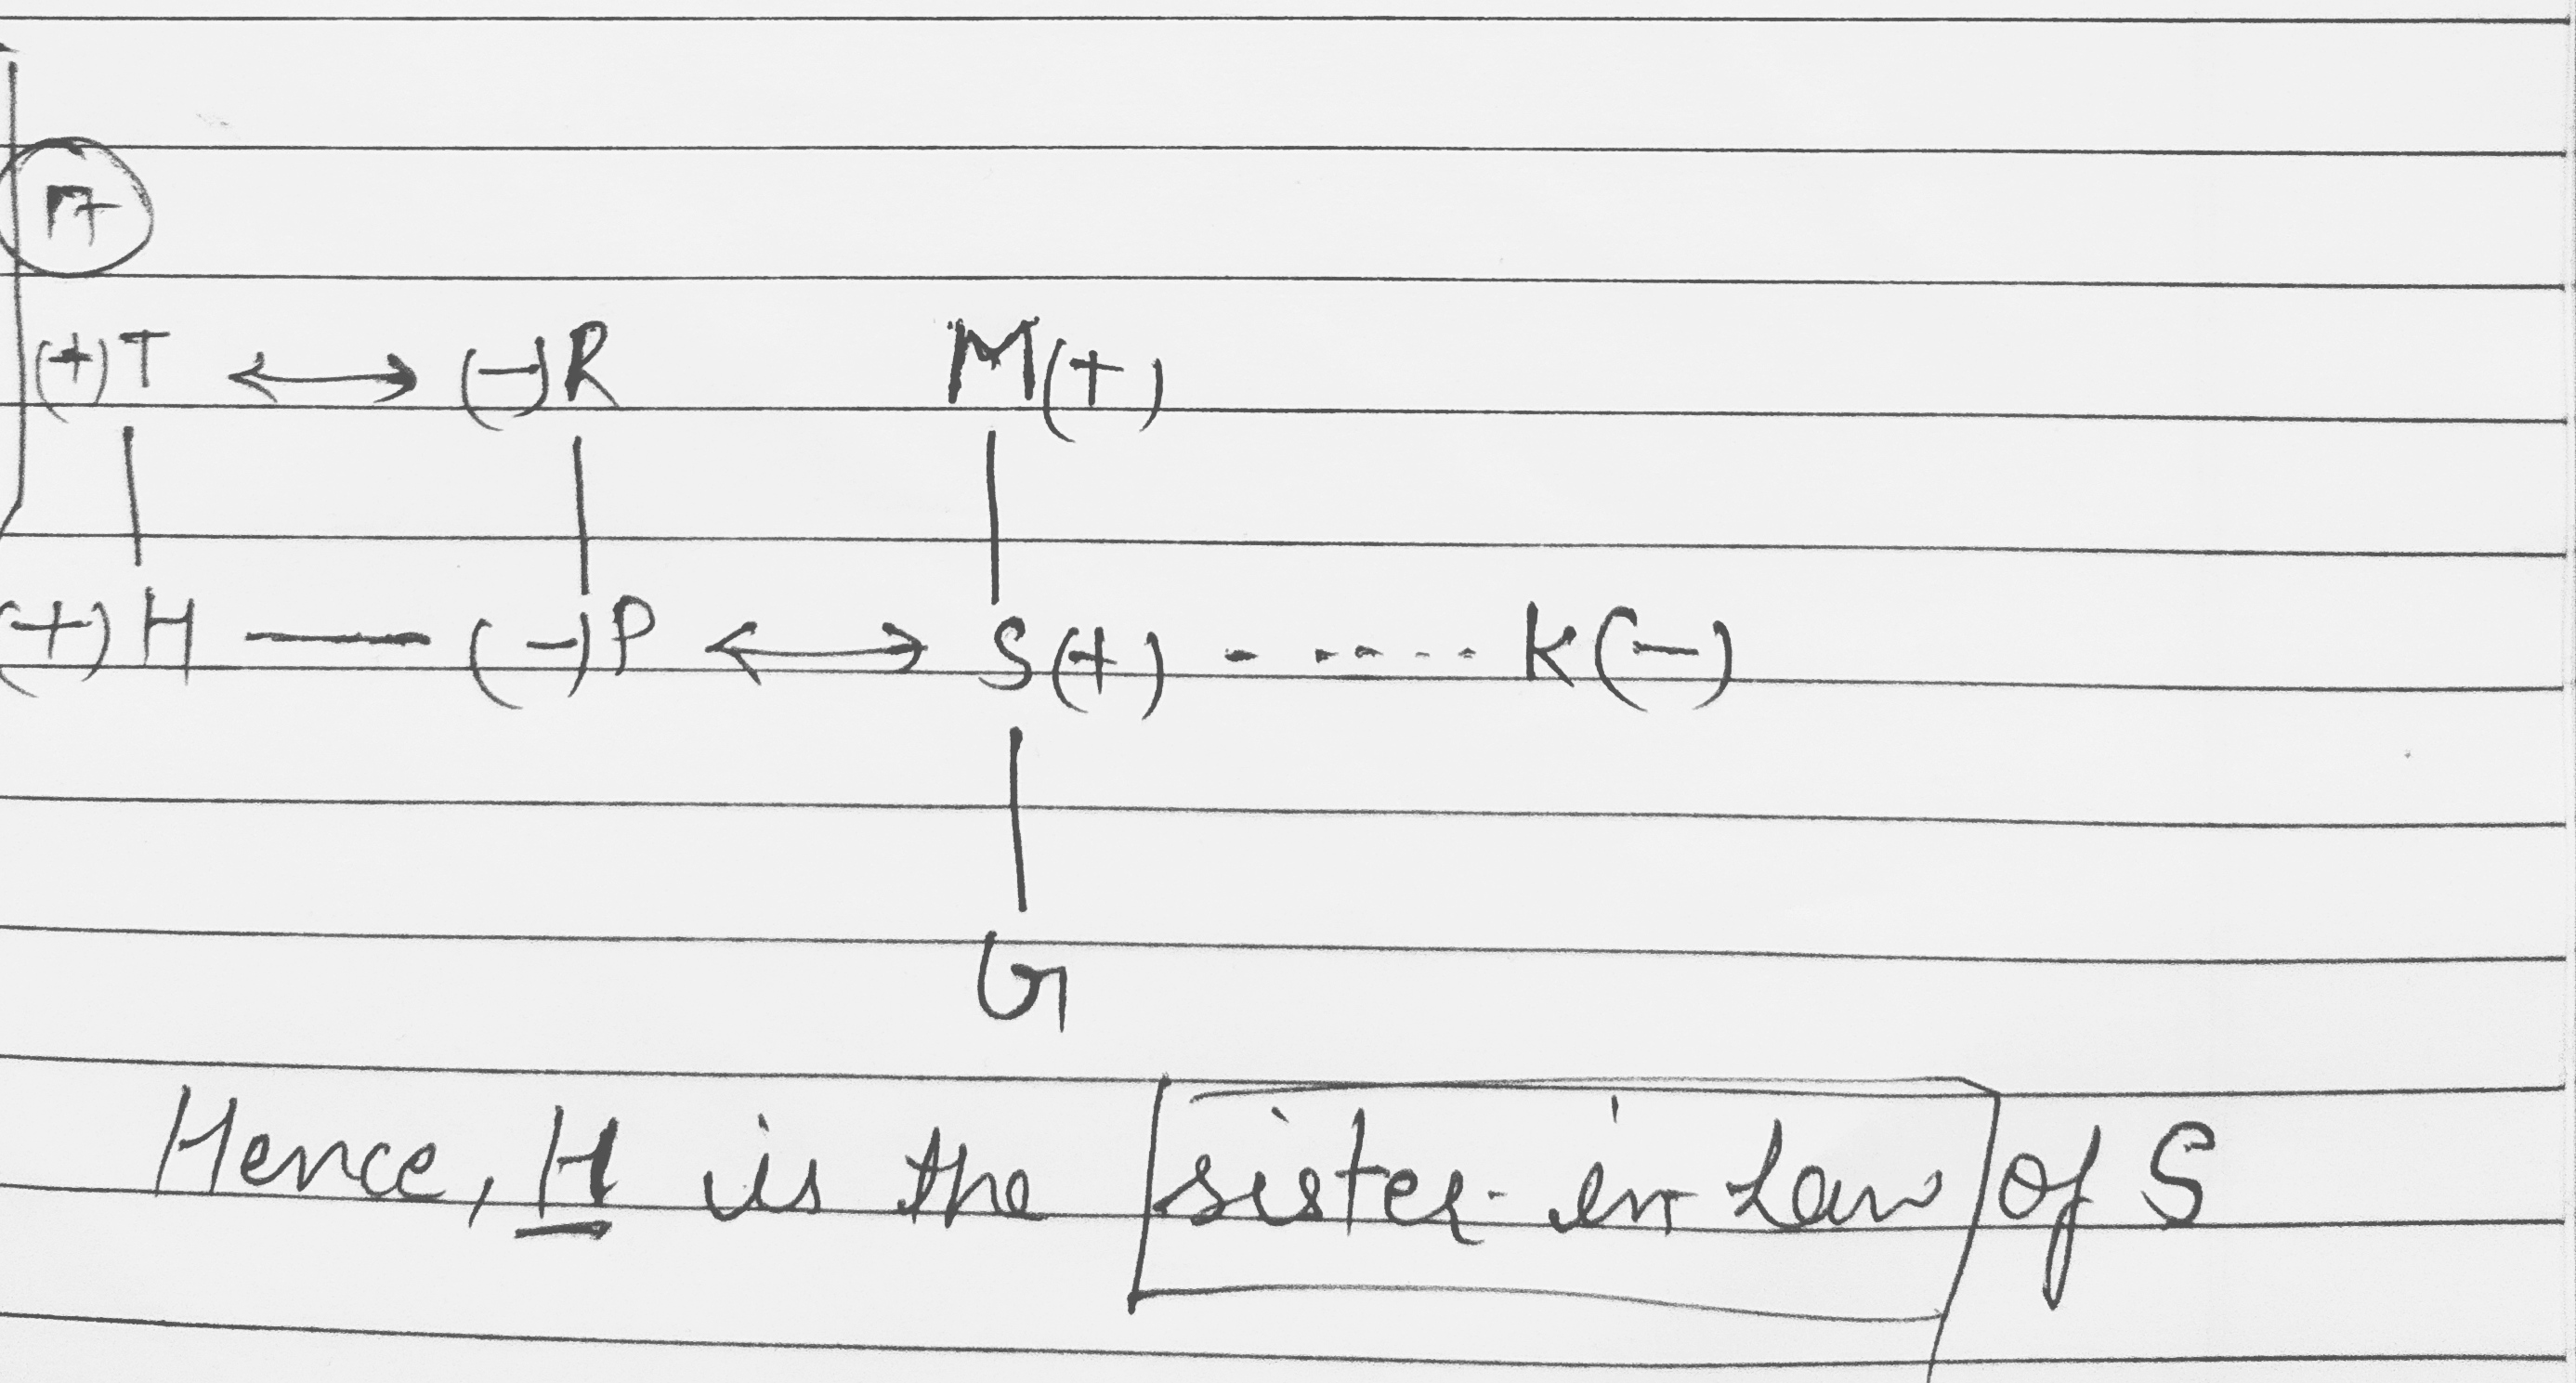 17
(+)T ⟷ (-)R M(+)
(+)H — (-)P ⟷ S(+) - - - - - K(-)
G
Hence, H is the sister-in Law of S